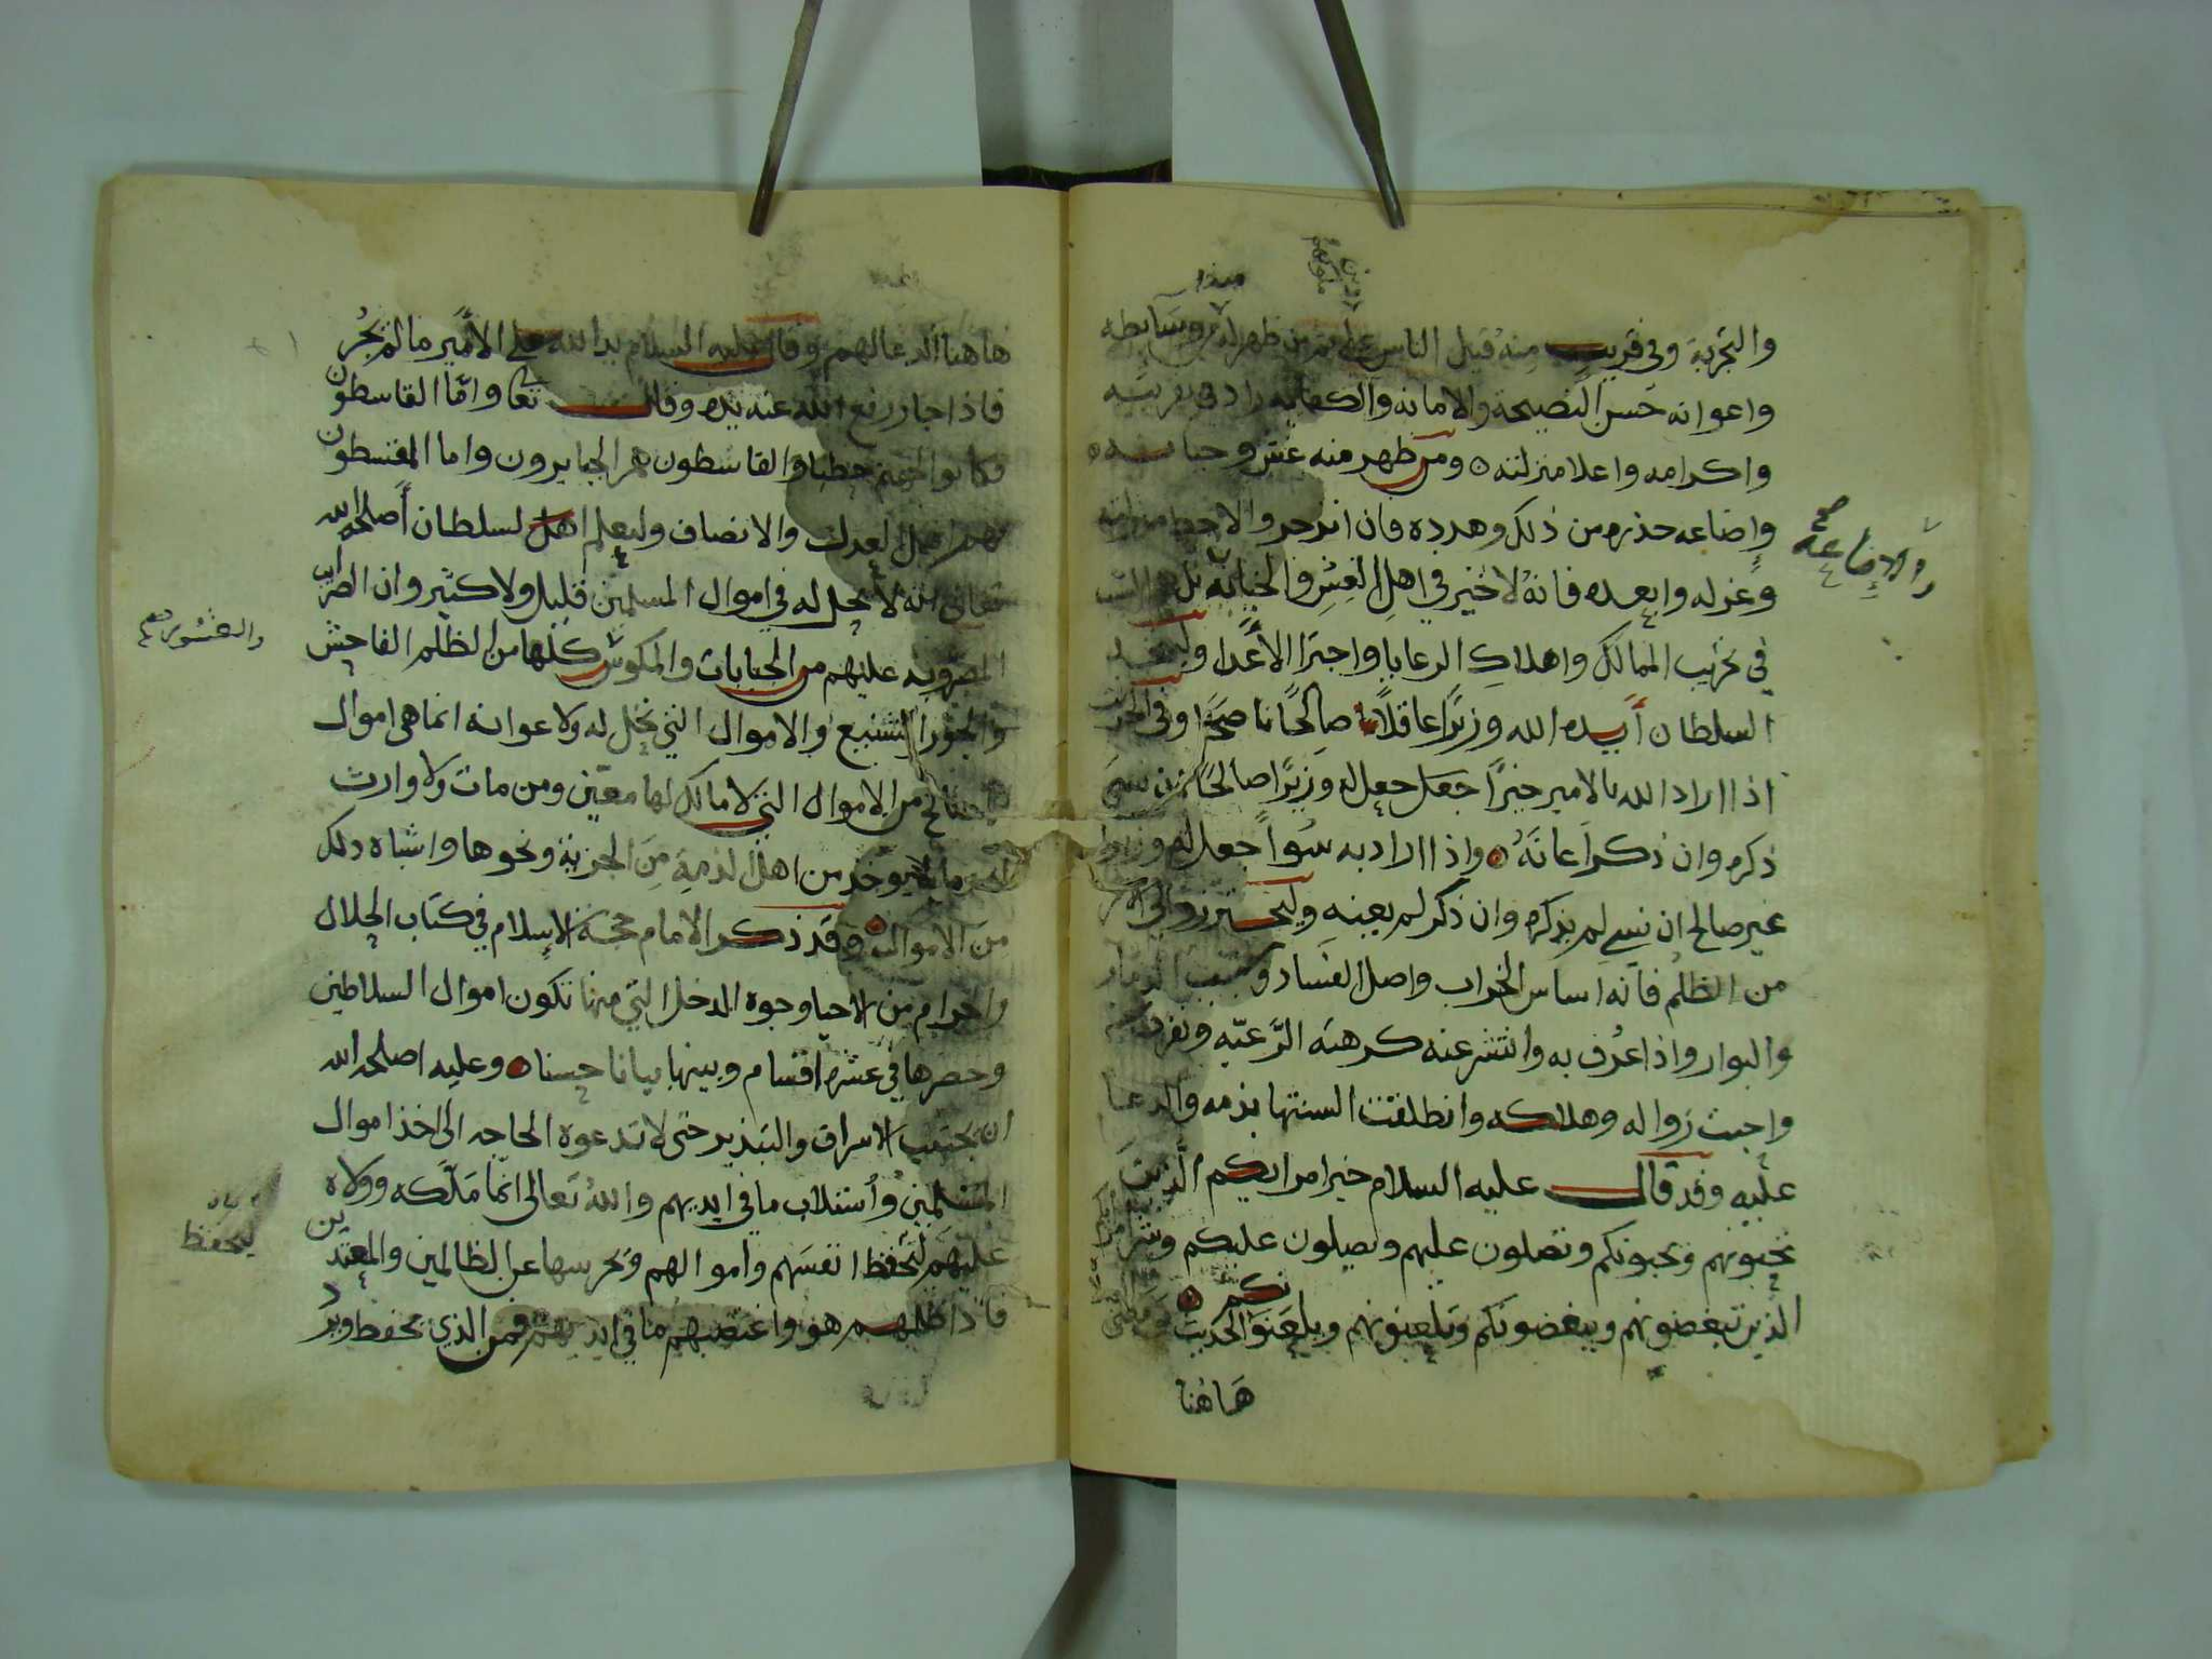 والتجربة وفي قريب منه قيل الناس على فمن ظهر له من وسايطه
واعوانه حسن النصيحة والامانة والكفاية زاد في تقريبه
واكرامه واعلا منزلته ٥ ومن ظهر منه غش وخيانه
واضاعه حذره من ذلك وهدده فان انزجر والا
وعزله وابعده فانه لا خير في اهل الغش والخيانة بل
والاضاعة صح
في تخريب الممالك واهلاك الرعايا واجترا الأعدا وليتخذ
السلطان أيده الله وزيرا عاقلا صالحا ناصحا وفي الخبر
اذا اراد الله بالامير خيرا جعل جعل له وزيرا صالحا ان نسي
ذكره وان ذكر اعانه ٥ واذا اراد به سوا جعل له وزيرا
غير صالح ان نسي لم يذكره وان ذكر لم يعينه وليحترز والي الامر
من الظلم فانه اساس الخراب واصل الفساد وسبب الدمار
والبوار واذا عرف به وانتشر عنه كرهته الرعيه ونفرت
واحبت زواله وهلاكه وانطلقت السنتها بذمه والدعا
عليه وقد قال عليه السلام خير امرايكم الذين
تحبونهم ويحبونكم وتصلون عليهم ويصلون عليكم وشر
الذين تبغضونهم ويبغضونكم وتلعنونهم ويلعنونكم ٥ الحديث
هاهنا
هاهنا الدعا لهم وقال عليه السلام يد الله على الأمير ما لم يجر
فاذا جار رفع الله عنه يده وقال تعا واما القاسطون
فكانوا لجهنم حطبا والقاسطون هم الجايرون واما المقسطون
فهم اهل العدل والانصاف وليعلم اهل لسلطان أصلحه الله
تعالى انه لا يحل له في اموال المسلمين قليل ولا كثير وان الضرايب
المضروبه عليهم من الجنايات والمكوس كلها من الظلم الفاحش
والعشور صح
والجور الشنيع والاموال التي تحل له ولاعوانه انما هي اموال
المصالح من الاموال التي لا مالك لها معين ومن مات ولا وارث
له وما يوخذ من اهل الذمة من الجزية ونحوها واشباه ذلك
من الاموال ٥ وقد ذكر الامام حجة الاسلام في كتاب الحلال
والحرام من الاحيا وجوه المدخل التي منها تكون اموال السلاطين
وحصرها في عشره اقسام وبينها بيانا حسنا ٥ وعليه اصلحه الله
ان يجتنب الاسراف والتبذير حتى لا تدعوه الحاجه الى اخذ اموال
المسلمين واستلاب ما في ايديهم والله تعالى انما ملكه وولاه
عليهم ليحفظ انفسهم واموالهم ويحرسها عن الظالمين والمعتدين
ليحفظ
فاذا ظلمهم هو واغتصبهم ما في ايديهم فمن الذي يحفظ ويرد